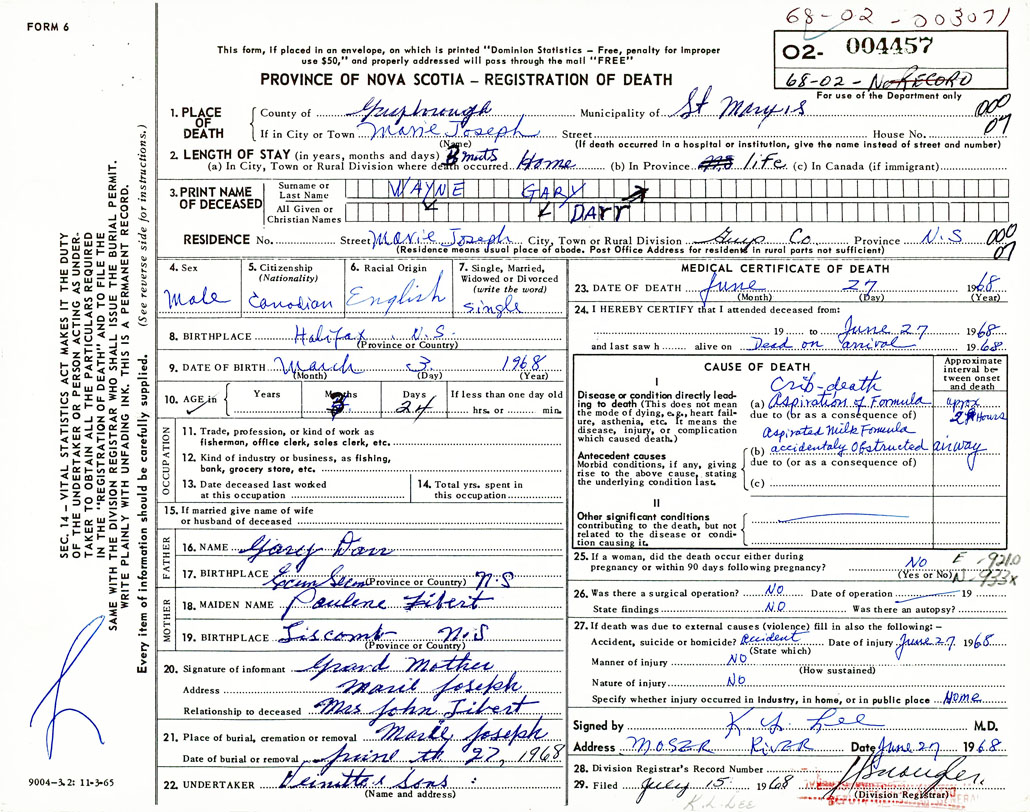 FORM 6
68-02-003071
This form, if placed in an envelope, on which is printed "Dominion Statistics – Free, penalty for improper
use $50," and properly addressed will pass through the mail "FREE"
PROVINCE OF NOVA SCOTIA – REGISTRATION OF DEATH
02- 004457
68-02- No RECORD
For use of the Department only
1. PLACE OF DEATH County of Guysborough Municipality of St Mary's 000
If in City or Town Marie Joseph Street House No. 07
(Name) (If death occurred in a hospital or institution, give the name instead of street and number)
2. LENGTH OF STAY (in years, months and days)
(a) In City, Town or Rural Division where death occurred Home (b) In Province life (c) In Canada (if immigrant)
3. PRINT NAME OF DECEASED Surname or Last Name WAYNE GARY
All Given or Christian Names DARR
RESIDENCE No. Street Marie Joseph City, Town or Rural Division Guys Co. Province N.S 000
(Residence means usual place of abode. Post Office Address for residents in rural parts not sufficient) 07
4. Sex Male
5. Citizenship (Nationality) Canadian
6. Racial Origin English
7. Single, Married, Widowed or Divorced (write the word) Single
8. BIRTHPLACE Halifax N.S.
(Province or Country)
9. DATE OF BIRTH March 3 1968
(Month) (Day) (Year)
10. AGE in Years Months 3 Days 24 If less than one day old hrs. or min.
OCCUPATION
11. Trade, profession, or kind of work as
fisherman, office clerk, sales clerk, etc.
12. Kind of industry or business, as fishing,
bank, grocery store, etc.
13. Date deceased last worked
at this occupation
14. Total yrs. spent in
this occupation
15. If married give name of wife
or husband of deceased
FATHER
16. NAME Gary Darr
17. BIRTHPLACE Ecum Secum (Province or Country) N.S
MOTHER
18. MAIDEN NAME Paulene
19. BIRTHPLACE Liscomb N.S
(Province or Country)
20. Signature of informant Grand Mother
Address Marie Joseph
Relationship to deceased Mrs John
21. Place of burial, cremation or removal Marie Joseph
Date of burial or removal June th 27, 1968
22. UNDERTAKER Sons
(Name and address)
MEDICAL CERTIFICATE OF DEATH
23. DATE OF DEATH June 27 1968
(Month) (Day) (Year)
24. I HEREBY CERTIFY that I attended deceased from:
19 to June 27 1968
and last saw h alive on Dead on arrival 1968
CAUSE OF DEATH
Approximate interval between onset and death
I
Crib-death
Disease or condition directly leading to death (This does not mean the mode of dying, e.g., heart failure, asthenia, etc. It means the disease, injury, or complication which caused death.)
(a) Aspiration of Formula aprox
due to (or as a consequence of) 2 Hours
Aspirated Milk Formula
Antecedent causes
Morbid conditions, if any, giving rise to the above cause, stating the underlying condition last.
(b) accidentaly obstructed airway
due to (or as a consequence of)
(c)
II
Other significant conditions
contributing to the death, but not related to the disease or condition causing it.
25. If a woman, did the death occur either during
pregnancy or within 90 days following pregnancy? No
(Yes or No)
E - 921.0
N - 933x
26. Was there a surgical operation? NO Date of operation 19
State findings NO Was there an autopsy?
27. If death was due to external causes (violence) fill in also the following: –
Accident, suicide or homicide? Accident Date of injury June 27, 1968
(State which)
Manner of injury NO
(How sustained)
Nature of injury NO
Specify whether injury occurred in industry, in home, or in public place Home
Signed by K L Lee M.D.
Address MOSER RIVER Date June 27 1968
28. Division Registrar's Record Number
29. Filed July 15 1968
(Division Registrar)
K.L. LEE
SEC. 14 – VITAL STATISTICS ACT MAKES IT THE DUTY
OF THE UNDERTAKER OR PERSON ACTING AS UNDER-
TAKER TO OBTAIN ALL THE PARTICULARS REQUIRED
IN THE "REGISTRATION OF DEATH" AND TO FILE THE
SAME WITH THE DIVISION REGISTRAR WHO SHALL ISSUE THE BURIAL PERMIT.
WRITE PLAINLY WITH UNFADING INK. THIS IS A PERMANENT RECORD.
Every item of information should be carefully supplied. (See reverse side for instructions.)
9004-3.2: 11-3-65